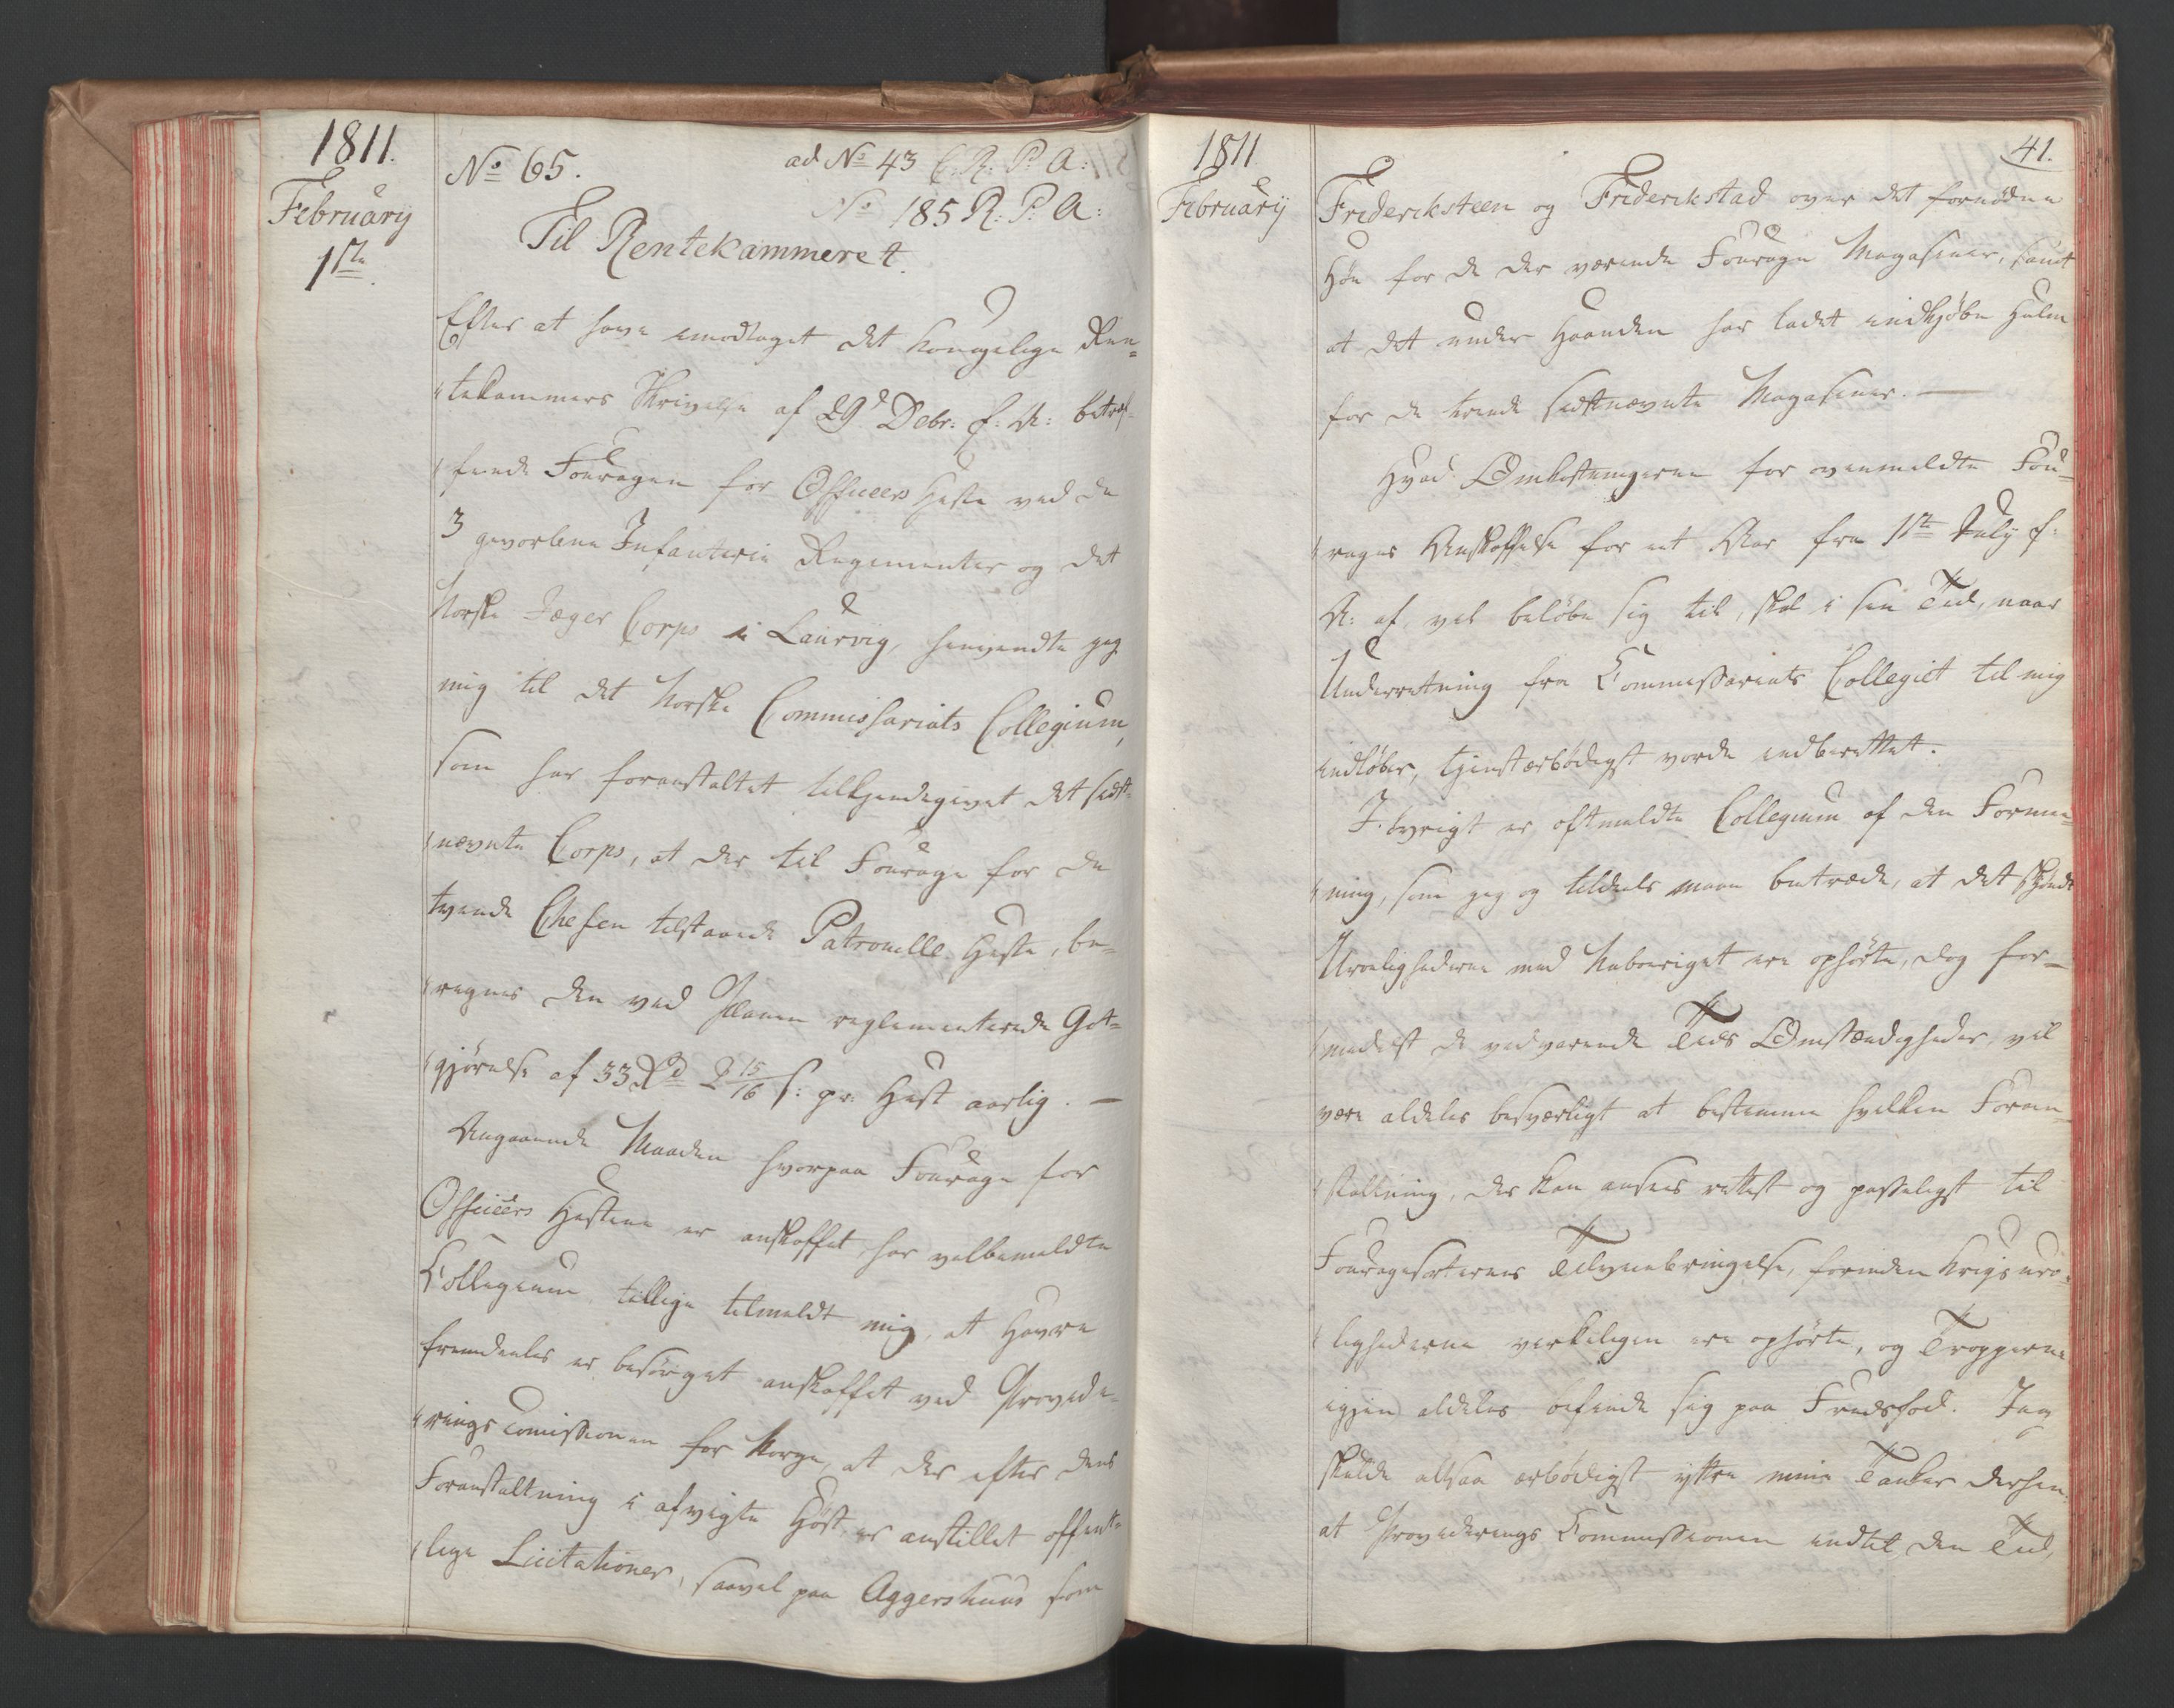 1811.
February
1ste
No 65.
ad No 43 C. R: P: A:
No 185 R: P: A:
Til Rentekammeret.
Efter at have modtaget det Kongelige Ren=
"tekammers Skrivelse af 29d Debr: f: A: betræf-
"fende Fouragen for Officeers Heste ved de
3 gevorbne Infanterie Regimenter og det
Norske Jæger Corps i Laurvig, henvendte jeg
mig til det Norske Commissariats Collegium,
som har foranstaltet tilkjendegivet det sidst-
"nævnte Corps, at der til Fourage for de
tvende Chefen tilstaaede Patrouille Heste, be=
"regnes den ved Planen reglementerede Got=
"gjørelse af 33 Rd 2 15/16 s: pr: Hest aarlig. —
Angaaende Maaden hvorpaa Fourage for
Officeers Hestene er anskaffet, har velbemeldte
Collegium tillige tilmeldt mig, at Havre
fremdeeles er besørget anskaffet ved Provide-
"rings Comissionen for Norge, at der efter dens
Foranstaltning i afvigte Høst, er anstillet offent-
"lige Licitationer, saavel paa Aggershuus som
1811
February
41.
Friderichsteen og Friderickstad over det fornødne
Høe for de der værende Fourage Magasiner, samt
at det under Haanden har ladet indkjøbe Halm
for de trende sidstnævnte Magasiner. —
Hvad Omkostningerne for ovenmeldte Fou=
"rages Anskaffelse for eet Aar fra 1ste July f:
A: af, vil beløbe sig til, skal i sin Tid, naar
Underretning fra Commissariats Collegiet til mig
indløber, tjenstærbødigst vorde indberettet.
I. øvrigt er oftmeldte Collegium af den Formee=
"ning, som jeg og tildeels maae betræde, at det skjøndt
Uroelighederne med Naboeriget ere ophørte, dog for=
"medelst de vedvarende Tids Omstændigheder, vil
være aldeles besværligt at bestemme hvilken Foran-
"staltning, der kan ansees rettest og passeligst til
Fouragesorternes Tilvejebringelse, forinden Krigs uro-
"lighederne virkeligen ere ophørte, og Tropperne
igjen aldeles befinde sig paa Fredsfod. Jeg
skulde altsaa ærbødigst yttre mine Tanker derhen:
at Providerings Commissionen indtil den Tid,